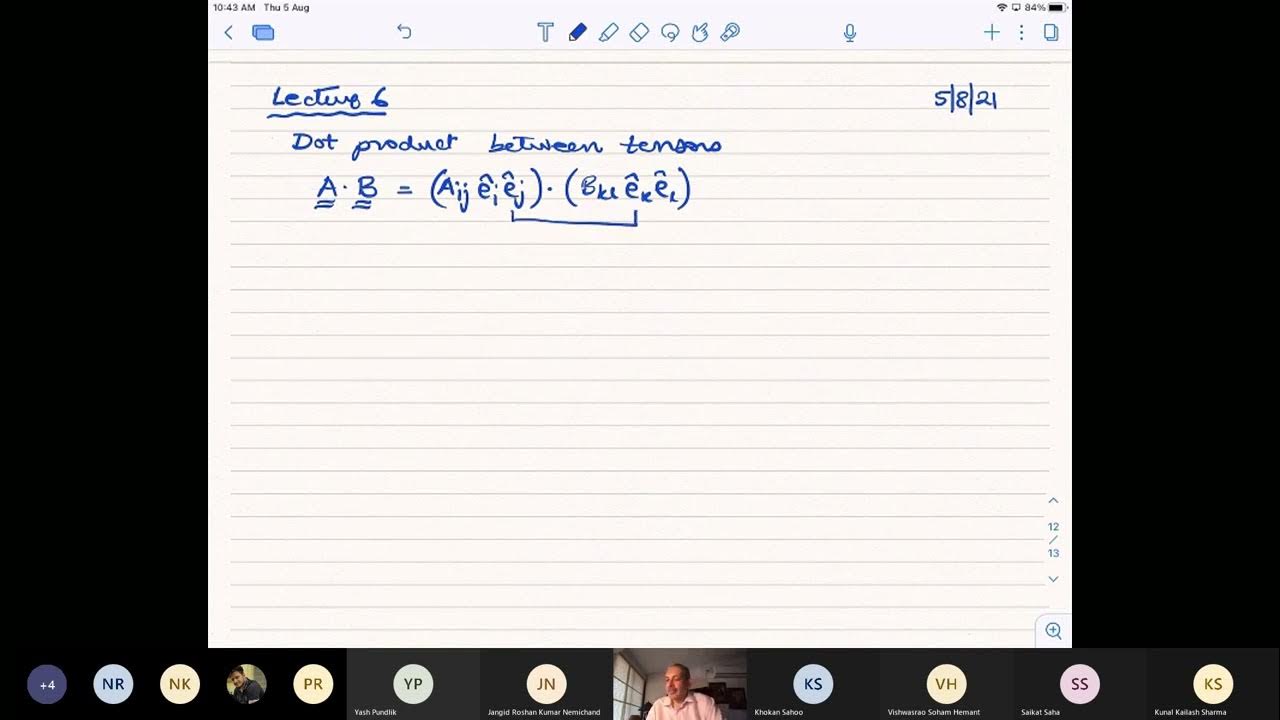 10:43 AM Thu 5 Aug 84%
T
Lecture 6 5/8/21
Dot product between tensors
A̳ · B̳ = (Aᵢⱼ êᵢ êⱼ) · (Bₖₗ êₖ êₗ)
12
/
13
+4 NR NK PR YP JN KS VH SS KS
Yash Pundlik Jangid Roshan Kumar Nemichand Khokan Sahoo Vishwasrao Soham Hemant Saikat Saha Kunal Kailash Sharma